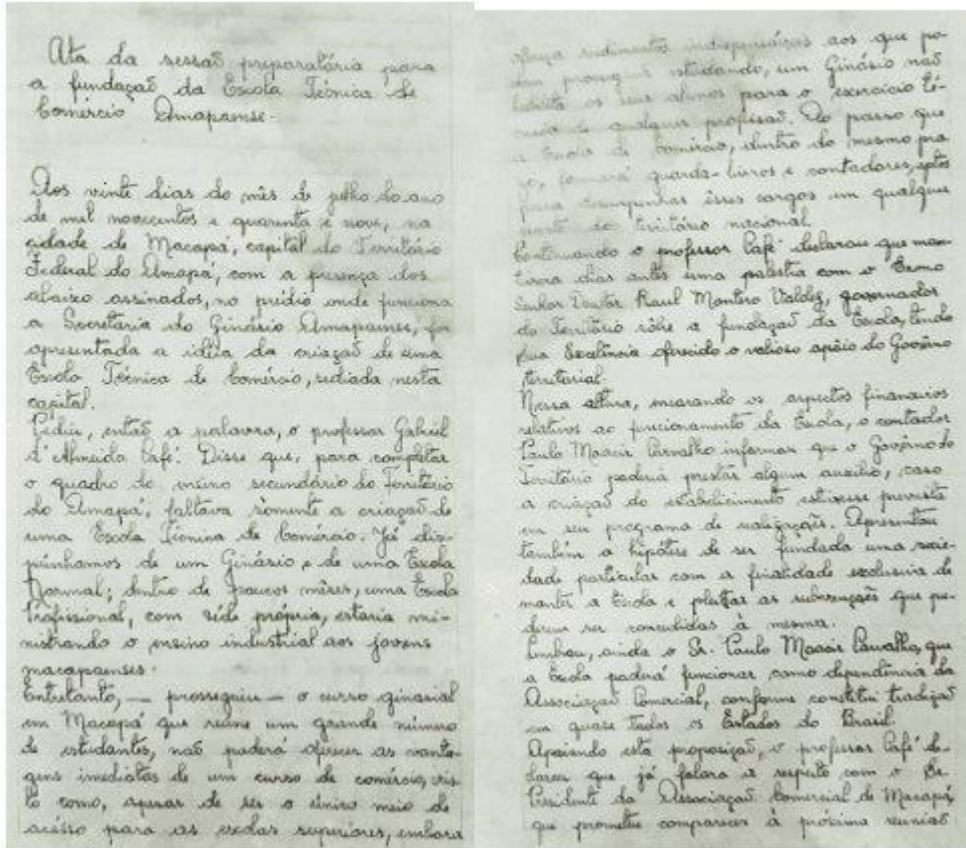 Ata da sessaõ preparatória para
a fundaçaõ da Escola Técnica de
Comércio Amapaense.
Aos vinte dias do mês de julho do ano
de mil novecentos e quarenta e nove, na
cidade de Macapá, capital do Território
Federal do Amapá, com a presença dos
abaixo assinados, no prédio onde funciona
a Secretaria do Ginásio Amapaense, foi
apresentada a idéia da criaçaõ de uma
Escola Técnica de Comércio, sediada nesta
capital.
Pediu, entaõ a palavra, o professor Gabriel
d'Almeida Café. Disse que, para completar
o quadro do ensino secundário do Território
do Amapá, faltava sòmente a criaçaõ de
uma Escola Técnica de Comércio. Já dis-
púnhamos de um Ginásio e de uma Escola
Normal; dentro de poucos mêses, uma Escola
Profissional, com séde própria, estaria mi-
nistrando o ensino industrial aos jovens
macapaenses.
Entretanto, — prosseguiu — o curso ginasial
em Macapá que reúne um grande número
de estudantes, naõ poderá oferecer as vanta-
gens imediatas de um curso de comércio, vis-
to como, apesar de ser o único meio de
acésso para as escolas superiores, embora
rudimentos aos que po-
dem prosseguir estudando, um Ginásio naõ
habilita os seus alunos para o exercício té-
cnico de qualquer profissaõ. Ao passo que
a Escola de Comércio, dentro do mesmo pra-
zo, formará guarda-livros e contadores, aptos
para desempenhar êsses cargos em qualquer
parte do território nacional.
Continuando o professor Café declarou que man-
tivera dias antes uma palestra com o Exmo
Senhor Doutor Raul Montero Valdez, governador
do Território sôbre a fundaçaõ da Escola, tendo
Sua Excelência oferecido o valioso apôio do Govêrno
territorial.
Nessa altura, encarando os aspectos financeiros
relativos ao funcionamento da Escola, o contador
Paulo Moacir Carvalho informou que o Govêrno do
Território poderia prestar algum auxílio, caso
a criaçaõ do estabelecimento estivesse prevista
em seu programa de realizações. Apresentou
também a hipótese de ser fundada uma socie-
dade particular com a finalidade exclusiva de
manter a Escola e pleitear as subvenções que pu-
dessem ser concedidas à mesma.
Lembrou, ainda o Sr. Paulo Moacir Carvalho, que
a Escola poderá funcionar como dependência da
Associaçaõ Comercial, conforme constitui tradiçaõ
em quase todos os Estados do Brasil.
Apoiando esta proposiçaõ, o professor Café de-
clarou que já falara a respeito com o Sr.
Presidente da Associaçaõ Comercial de Macapá,
que prometeu comparecer à próxima reuniaõ